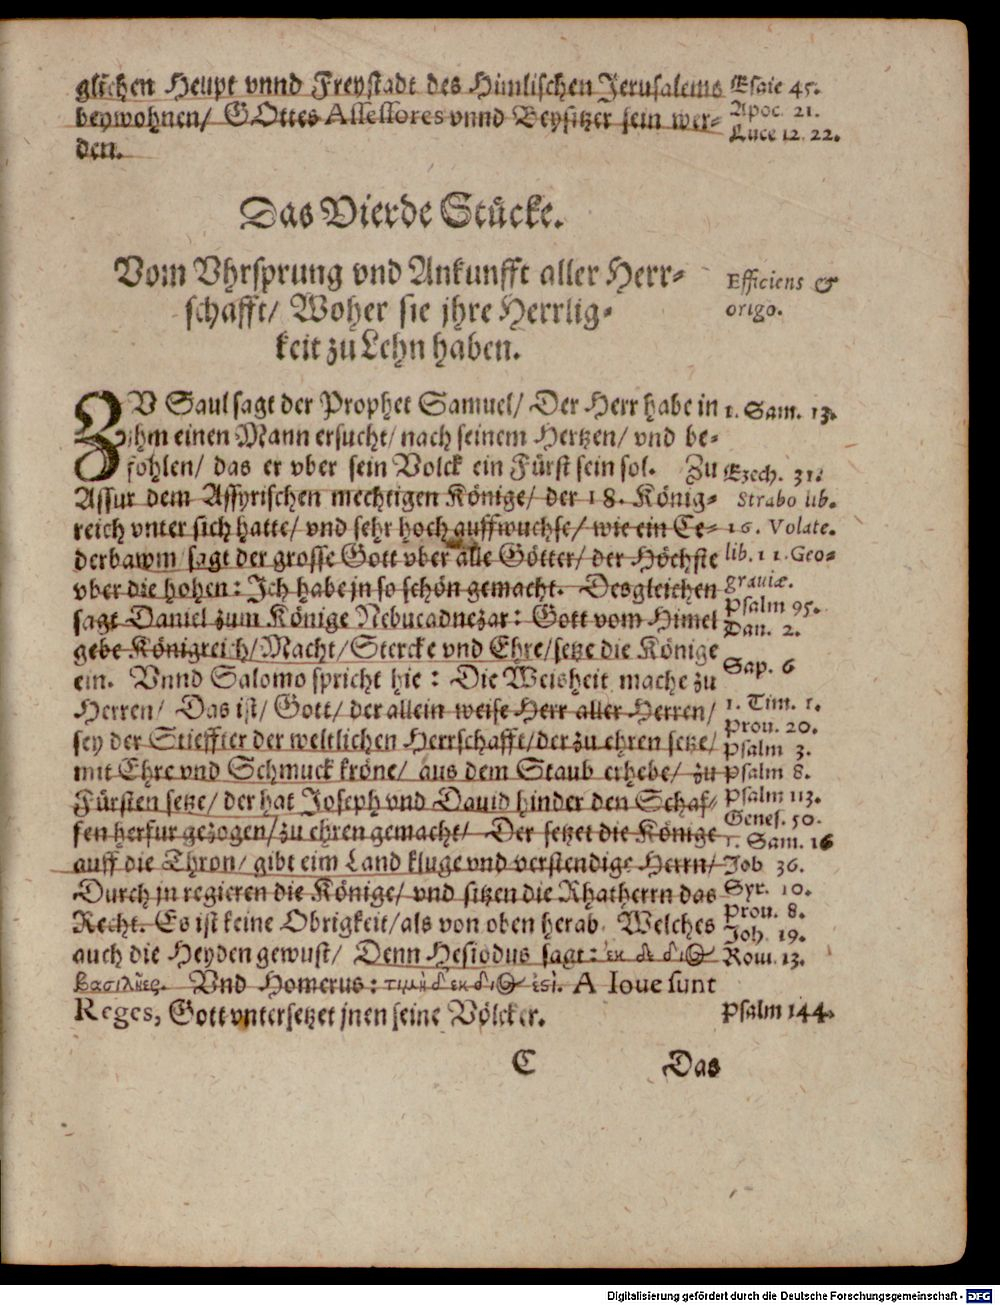 glichen Heupt vnnd Freystadt des Himlischen Jerusalems
beywohnen/ GOttes Assessores vnnd Beysitzer sein wer-
den.
Esaie 45.
Apoc. 21.
Luce 12. 22.
Das Vierde Stücke.
Vom Vhrsprung vnd Ankunfft aller Herr-
schafft/ Woher sie jhre Herrlig-
keit zu Lehn haben.
Efficiens &
origo.
ZV Saul sagt der Prophet Samuel/ Der Herr habe in
jhm einen Mann ersucht/ nach seinem Hertzen/ vnd be-
fohlen/ das er vber sein Volck ein Fürst sein sol. Zu
Assur dem Assyrischen mechtigen Könige/ der 18. König-
reich vnter sich hatte/ vnd sehr hoch auffwuchse/ wie ein Ce-
derbawm/ sagt der grosse Gott vber alle Götter/ der Höchste
vber die hohen: Ich habe jn so schön gemacht. Desgleichen
sagt Daniel zum Könige Nebucadnezar: Gott vom Himel
gebe Königreich/ Macht/ Stercke vnd Ehre/ setze die Könige
ein. Vnnd Salomo spricht hie: Die Weisheit mache zu
Herren/ Das ist/ Gott/ der allein weise Herr aller Herren/
sey der Stieffter der weltlichen Herrschafft/ der zu ehren setze/
mit Ehre vnd Schmuck kröne/ aus dem Staub erhebe/ zu
Fürsten setze/ der hat Joseph vnd Dauid hinder den Schaf-
fen herfur gezogen/ zu ehren gemacht/ Der setzet die Könige
auff die Thron/ gibt eim Land kluge vnd verstendige Herrn/
Durch jn regieren die Könige/ vnd sitzen die Rhatherrn das
Recht. Es ist keine Obrigkeit/ als von oben herab. Welches
auch die Heyden gewust/ Denn Hesiodus sagt: ἐκ δὲ διὸς
βασιλῆες. Vnd Homerus: τιμὴ δ' ἐκ διὸς ἐσί. A Ioue sunt
Reges, Gott vntersetzet jnen seine Völcker.
1. Sam. 13.
Ezech. 31.
Strabo lib.
16. Volate.
lib. 11. Geo-
graviæ.
Psalm 95.
Dan. 2.
Sap. 6
1. Tim. 1.
Prou. 20.
Psalm 3.
Psalm 8.
Psalm 113.
Genes. 50.
1. Sam. 16
Job 36.
Syr. 10.
Prou. 8.
Joh. 19.
Rom. 13.
Psalm 144.
C
Das
Digitalisierung gefördert durch die Deutsche Forschungsgemeinschaft - DFG